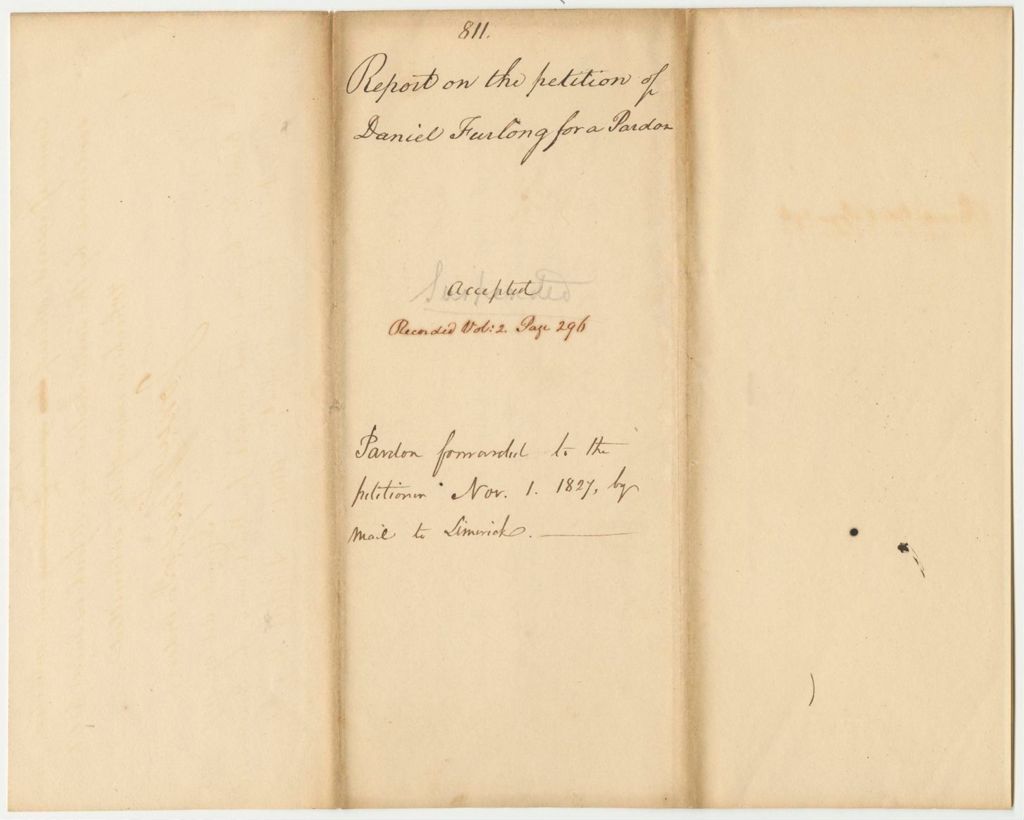 811.
Report on the petition of
Daniel Furlong for a Pardon
Suspended
Accepted
Recorded Vol: 2. Page 296
Pardon forwarded to the
petitioner Nov. 1. 1827, by
mail to Limerick.